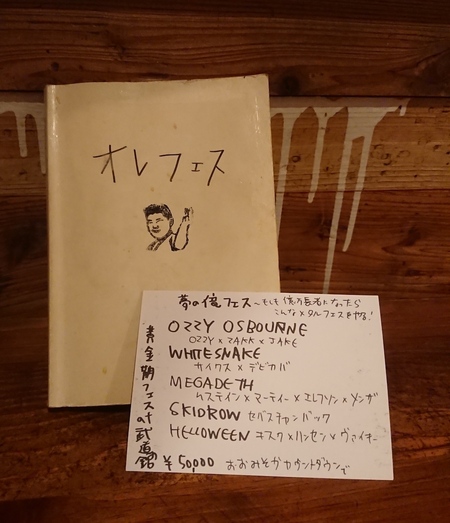 オレフェス
夢の億フェス〜もしも億万長者になったら
こんなメタルフェスをやる!
OZZY OSBOURNE
OZZY × ZAKK × JAKE
WHITESNAKE
サイクス × デビカバ
MEGADETH
ムステイン × マーティー × エレフソン × メンザ
SKIDROW セバスチャンバック
HELLOWEEN キスク × ハンセン × ヴァイキー
¥50,000 おおみそかカウントダウンで
黄金期フェス at 武道館